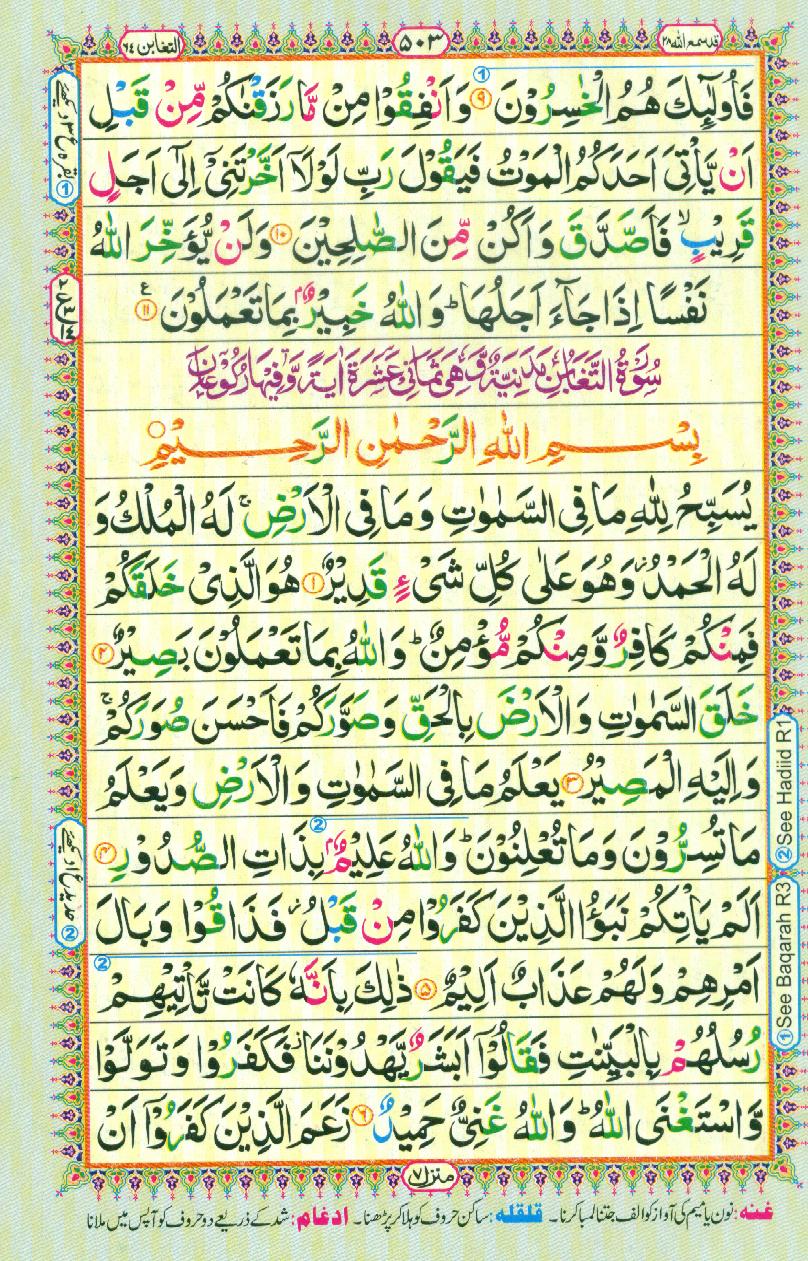 قد سمع الله ٢٨
٥٠٣
التغابن ٦٤
فَاُولٰٓئِكَ هُمُ الْخٰسِرُوْنَ ۹ وَاَنْفِقُوْا مِنْ مَّا رَزَقْنٰكُمْ مِّنْ قَبْلِ
اَنْ يَّاْتِيَ اَحَدَكُمُ الْمَوْتُ فَيَقُوْلَ رَبِّ لَوْلَاۤ اَخَّرْتَنِيْۤ اِلٰۤى اَجَلٍ
قَرِيْبٍ ۙ فَاَصَّدَّقَ وَاَكُنْ مِّنَ الصّٰلِحِيْنَ ۱۰ وَلَنْ يُّؤَخِّرَ اللّٰهُ
نَفْسًا اِذَا جَآءَ اَجَلُهَا ؕ وَاللّٰهُ خَبِيْرٌۢ بِمَا تَعْمَلُوْنَ ۱۱ ع
سُوْرَةُ التَّغَابُنِ مَدَنِيَّةٌ وَّهِيَ ثَمَانِيْ عَشْرَةَ اٰيَةً وَّفِيْهَا رُكُوْعَانِ
بِسْمِ اللّٰهِ الرَّحْمٰنِ الرَّحِيْمِ
يُسَبِّحُ لِلّٰهِ مَا فِي السَّمٰوٰتِ وَمَا فِي الْاَرْضِ ۚ لَهُ الْمُلْكُ وَ
لَهُ الْحَمْدُ ؗ وَهُوَ عَلٰى كُلِّ شَيْءٍ قَدِيْرٌ ۱ هُوَ الَّذِيْ خَلَقَكُمْ
فَمِنْكُمْ كَافِرٌ وَّمِنْكُمْ مُّؤْمِنٌ ؕ وَاللّٰهُ بِمَا تَعْمَلُوْنَ بَصِيْرٌ ۲
خَلَقَ السَّمٰوٰتِ وَالْاَرْضَ بِالْحَقِّ وَصَوَّرَكُمْ فَاَحْسَنَ صُوَرَكُمْ ۚ
وَاِلَيْهِ الْمَصِيْرُ ۳ يَعْلَمُ مَا فِي السَّمٰوٰتِ وَالْاَرْضِ وَيَعْلَمُ
مَا تُسِرُّوْنَ وَمَا تُعْلِنُوْنَ ؕ وَاللّٰهُ عَلِيْمٌۢ بِذَاتِ الصُّدُوْرِ ۴
اَلَمْ يَاْتِكُمْ نَبَؤُا الَّذِيْنَ كَفَرُوْا مِنْ قَبْلُ ؗ فَذَاقُوْا وَبَالَ
اَمْرِهِمْ وَلَهُمْ عَذَابٌ اَلِيْمٌ ۵ ذٰلِكَ بِاَنَّهٗ كَانَتْ تَّاْتِيْهِمْ
رُسُلُهُمْ بِالْبَيِّنٰتِ فَقَالُوْۤا اَبَشَرٌ يَّهْدُوْنَنَا ؗ فَكَفَرُوْا وَتَوَلَّوْا
وَّاسْتَغْنَى اللّٰهُ ؕ وَاللّٰهُ غَنِيٌّ حَمِيْدٌ ۶ زَعَمَ الَّذِيْنَ كَفَرُوْۤا اَنْ
منزل ٧
① بقرہ ع ۳ دیکھیے
② حدید ع ۱ دیکھیے
② See Hadiid R1
① See Baqarah R3
غنہ: نون یا میم کی آواز کو الف جتنا لمبا کرنا۔ قلقلہ: ساکن حروف کو ہلا کر پڑھنا۔ ادغام: شد کے ذریعے دو حروف کو آپس میں ملانا